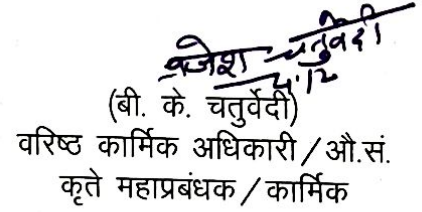 व्रजेश चतुर्वेदी
(बी. के. चतुर्वेदी)
वरिष्ठ कार्मिक अधिकारी / औ.सं.
कृते महाप्रबंधक / कार्मिक